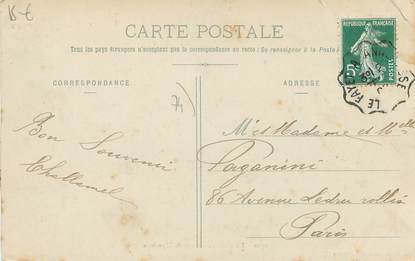 15-€
CARTE POSTALE
Tous les pays étrangers n'acceptent pas la correspondance au recto (Se renseigner à la Poste)
CORRESPONDANCE
ADRESSE
RÉPUBLIQUE FRANÇAISE
5c
POSTES
LE FAYET
74
Bon Souvenir
Challamel
M. et Madame et Melle
Paganini
86 Avenue Ledru rollin
Paris